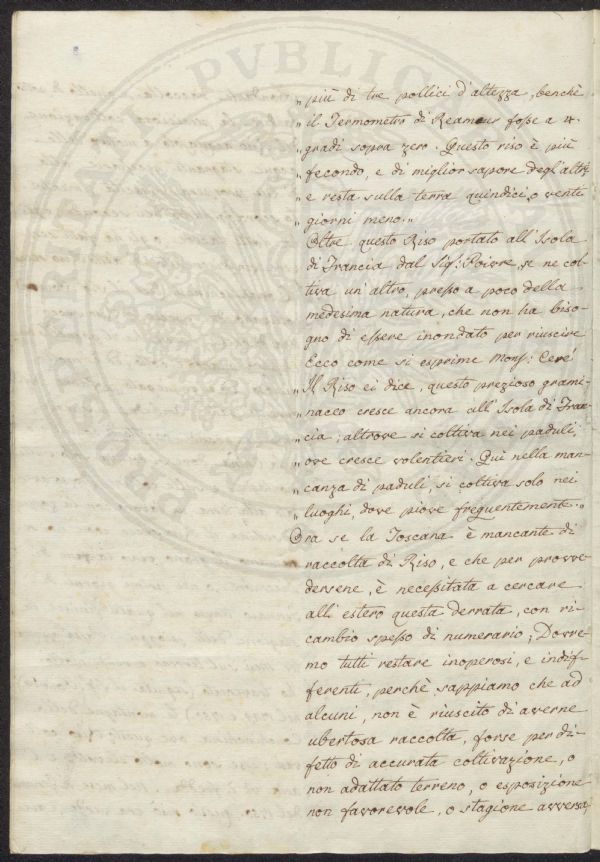 „ più di tre pollici d'altezza, benchè
„ il Termometro di Reameur fosse a 4.
„ gradi sopra zero. Questo riso è più
„ fecondo, e di miglior sapore degl'altri
„ e resta sulla terra quindici, o venti
„ giorni meno. „
Oltre questo Riso portato all'Isola
di Francia dal Sig: Poivre, se ne col-
tiva un'altro, presso a poco della
medesima natura, che non ha biso-
gno di essere inondato per riuscire
Ecco come si esprime Mons: Ceré
„ Il Riso ei dice, questo prezioso grami-
„ nacco cresce ancora all'Isola di Fran-
„ cia, altrove si coltiva nei paduli,
„ ove cresce volentieri. Qui nella man-
„ canza di paduli, si coltiva solo nei
„ luoghi, dove piove frequentemente. „
Ora se la Toscana è mancante di
raccolta di Riso, e che per provve-
dersene, è necessitata a cercare
all'estero questa derrata, con ri-
cambio spesso di numerario; Dovre-
mo tutti restare inoperosi, e indif-
ferenti, perchè sappiamo che ad
alcuni, non è riuscito di averne
ubertosa raccolta, forse per di-
fetto di accurata coltivazione, o
non adattato terreno, o esposizione
non favorevole, o stagione avversa,
PVBLIC